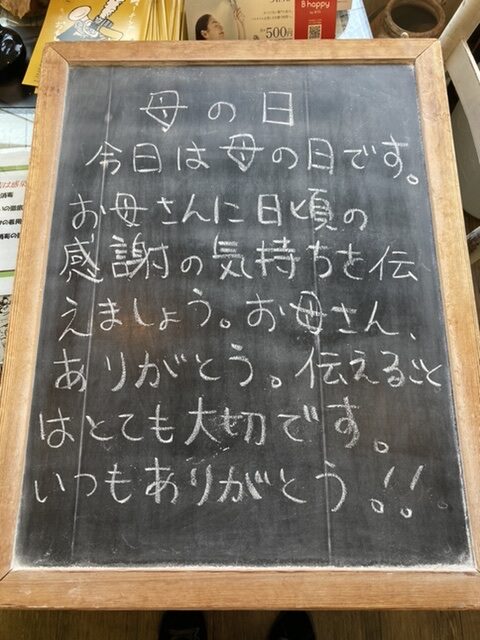 8 happy
500円
母の日
今日は母の日です。
お母さんに日頃の
感謝の気持ちを伝
えましょう。お母さん、
ありがとう。伝えること
はとても大切です。
いつもありがとう!!